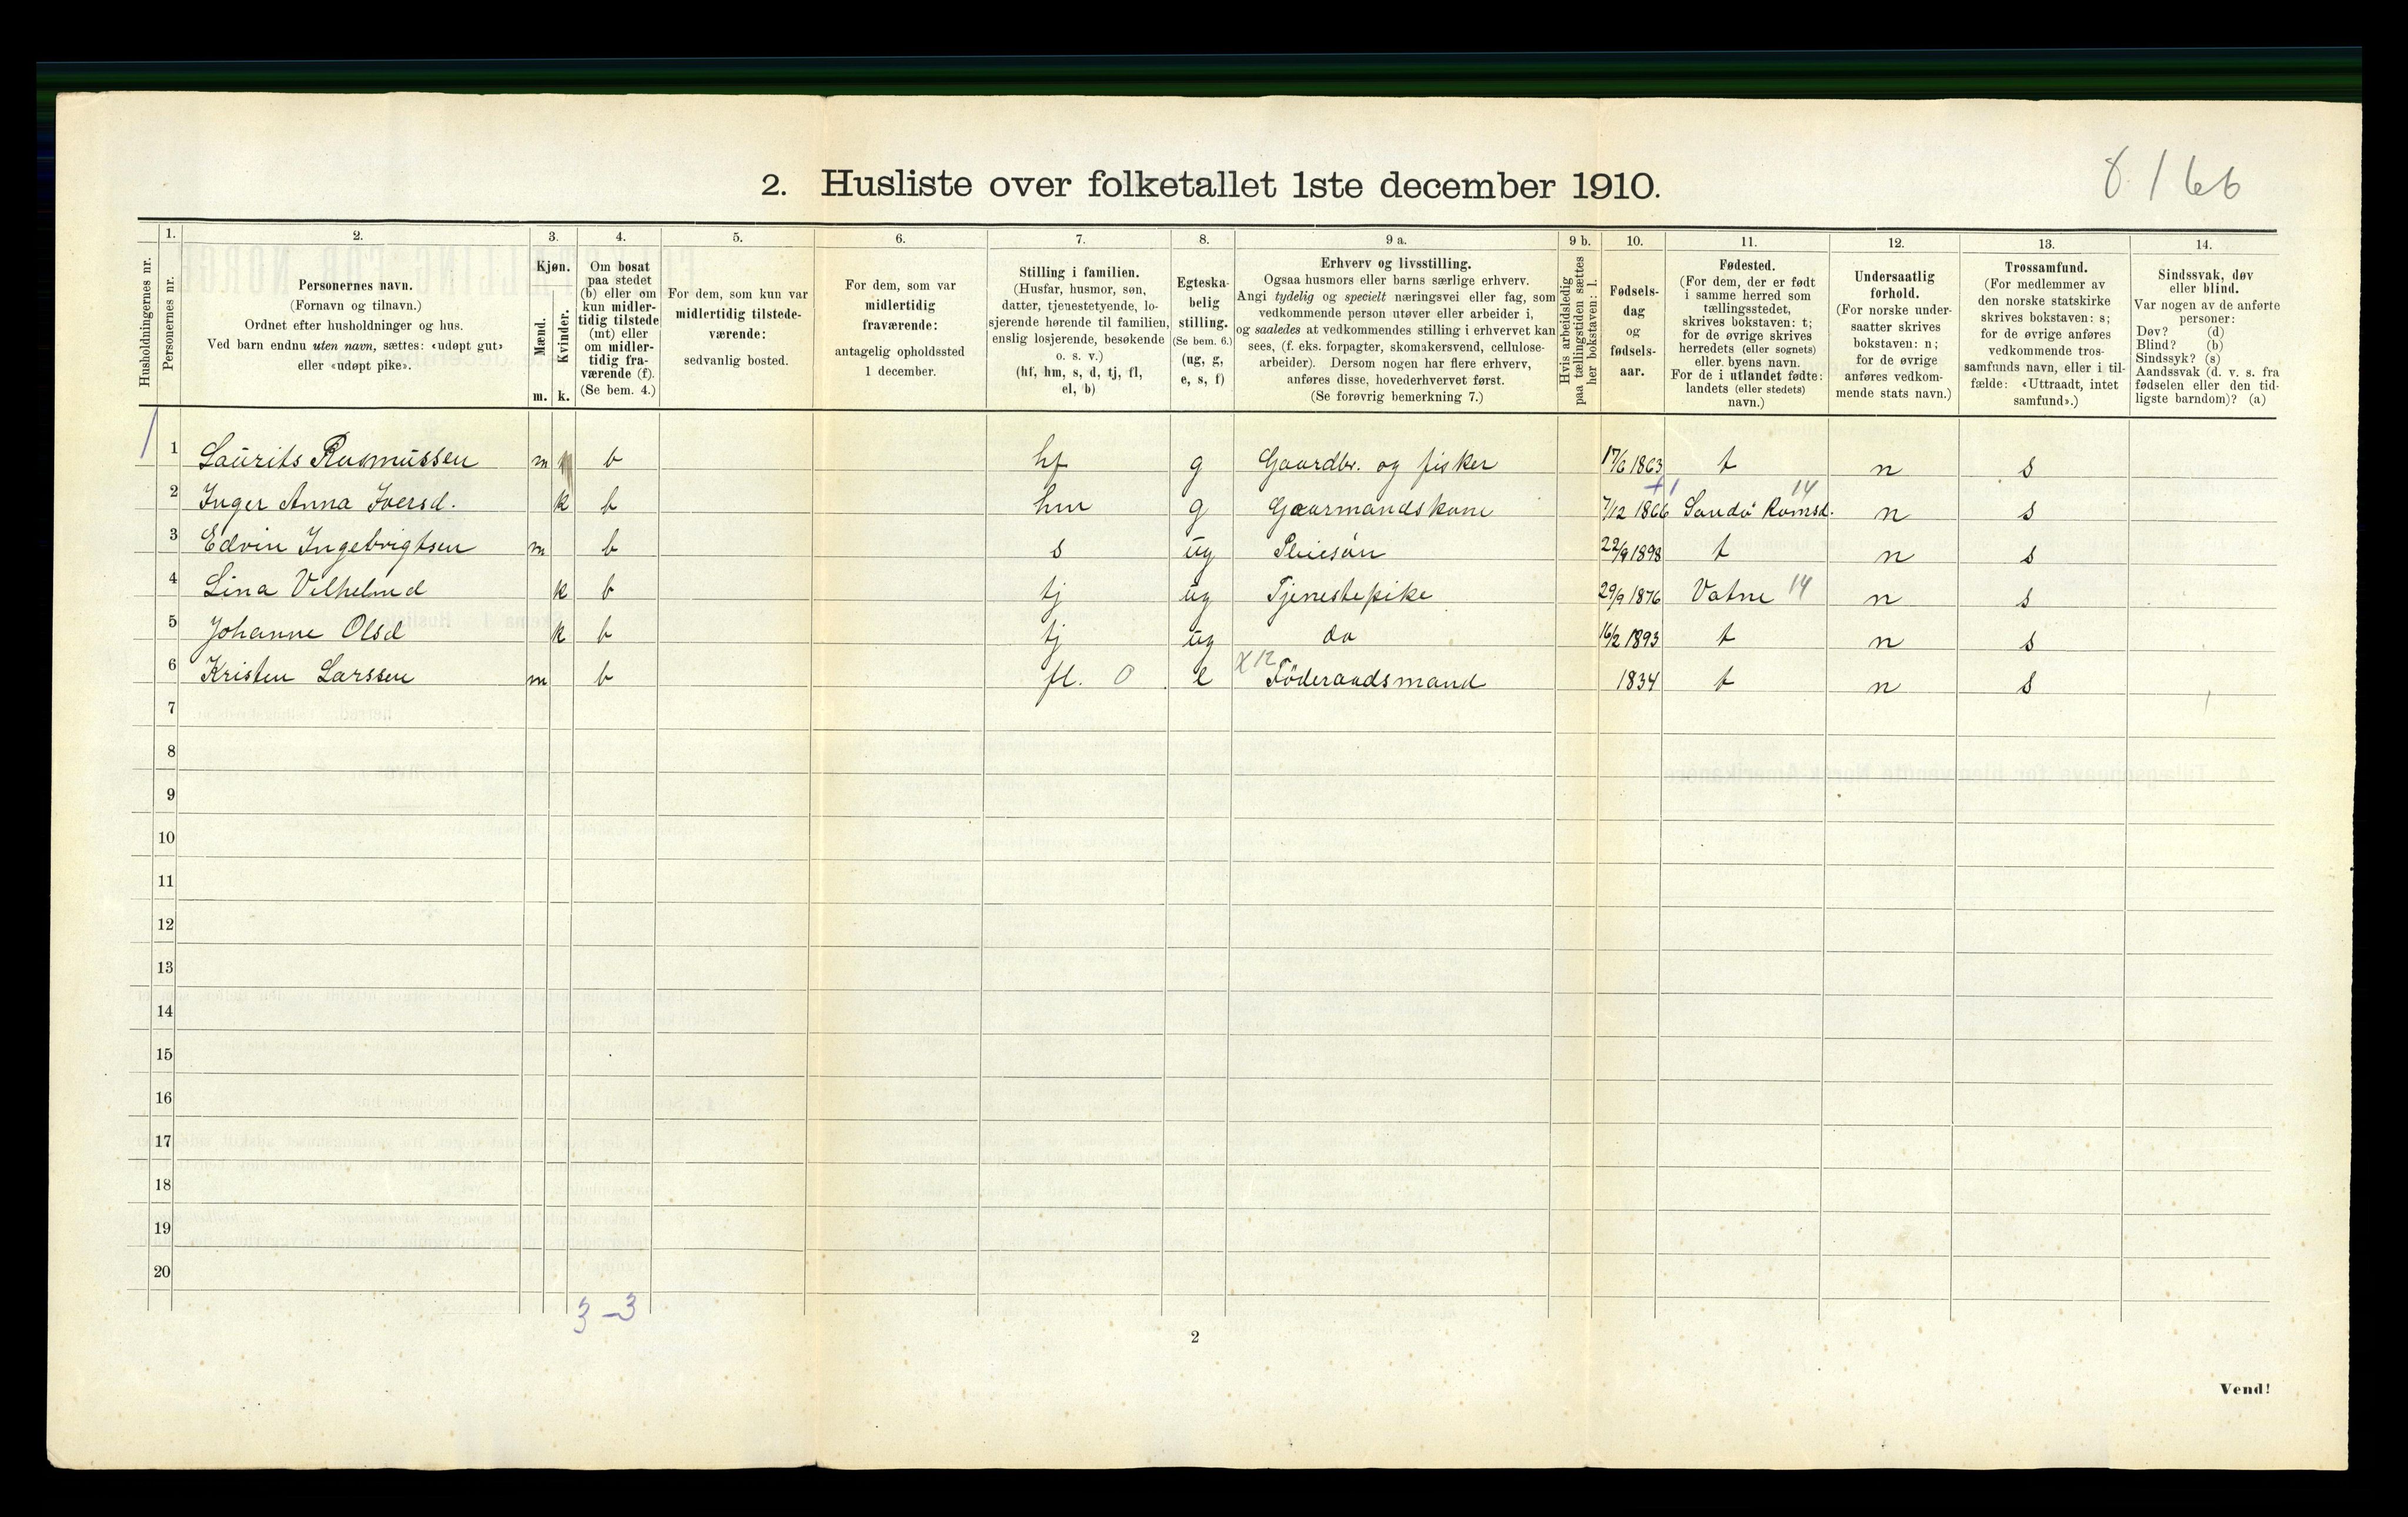 2. Husliste over folketallet 1ste december 1910.
8 / 66
1. 2. 3. 4. 5. 6. 7. 8. 9 a. 9 b. 10. 11. 12. 13. 14.
Husholdningernes nr.
Personernes nr.
Personernes navn.
(Fornavn og tilnavn.)
Ordnet efter husholdninger og hus.
Ved barn endnu uten navn, sættes: «udøpt gut»
eller «udøpt pike».
Kjøn.
Mænd.
Kvinder.
m. k.
Om bosat
paa stedet
(b) eller om
kun midler-
tidig tilstede
(mt) eller
om midler-
tidig fra-
værende (f).
(Se bem. 4.)
For dem, som kun var
midlertidig tilstede-
værende:
sedvanlig bosted.
For dem, som var
midlertidig
fraværende:
antagelig opholdssted
1 december.
Stilling i familien.
(Husfar, husmor, søn,
datter, tjenestetyende, lo-
sjerende hørende til familien,
enslig losjerende, besøkende
o. s. v.)
(hf, hm, s, d, tj, fl,
el, b)
Egteska-
belig
stilling.
(Se bem. 6.)
(ug, g,
e, s, f)
Erhverv og livsstilling.
Ogsaa husmors eller barns særlige erhverv.
Angi tydelig og specielt næringsvei eller fag, som
vedkommende person utøver eller arbeider i,
og saaledes at vedkommendes stilling i erhvervet kan
sees, (f. eks. forpagter, skomakersvend, cellulose-
arbeider). Dersom nogen har flere erhverv,
anføres disse, hovederhvervet først.
(Se forøvrig bemerkning 7.)
Hvis arbeidsledig
paa tællingstiden sættes
her bokstaven: l.
Fødsels-
dag
og
fødsels-
aar.
Fødested.
(For dem, der er født
i samme herred som
tællingsstedet,
skrives bokstaven: t;
for de øvrige skrives
herredets (eller sognets)
eller byens navn.
For de i utlandet fødte:
landets (eller stedets)
navn.)
Undersaatlig
forhold.
(For norske under-
saatter skrives
bokstaven: n;
for de øvrige
anføres vedkom-
mende stats navn.)
Trossamfund.
(For medlemmer av
den norske statskirke
skrives bokstaven: s;
for de øvrige anføres
vedkommende tros-
samfunds navn, eller i til-
fælde: «Uttraadt, intet
samfund».)
Sindssvak, døv
eller blind.
Var nogen av de anførte
personer:
Døv? (d)
Blind? (b)
Sindssyk? (s)
Aandssvak (d. v. s. fra
fødselen eller den tid-
ligste barndom)? (a)
1 1 Laurits Rasmussen m b hf g Gaardbr. og fisker 17/6 1863 t n s
2 Inger Anna Iversd. k b hm g Gaarmandskone 7/12 1866 Sandö Romsd. 14 n s
3 Edvin Ingebrigtsen m b s ug 22/9 1898 t n s
4 Lina Vilhelmd k b tj ug Tjenestepike 29/9 1876 Vatne 14 n s
5 Johanne Olsd k b tj ug do 16/2 1893 t n s
6 Kristen Larssen m b fl. 0 e X 12 Föderaadsmand 1834 t n s
7
8
9
10
11
12
13
14
15
16
17
18
19
20
3 - 3
2
Vend!